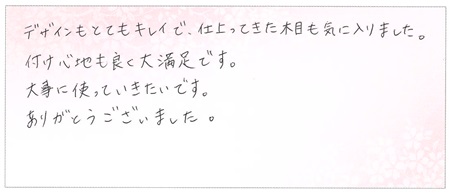 デザインもとてもキレイで、仕上ってきた木目も気に入りました。
付け心地も良く大満足です。
大事に使っていきたいです。
ありがとうございました。